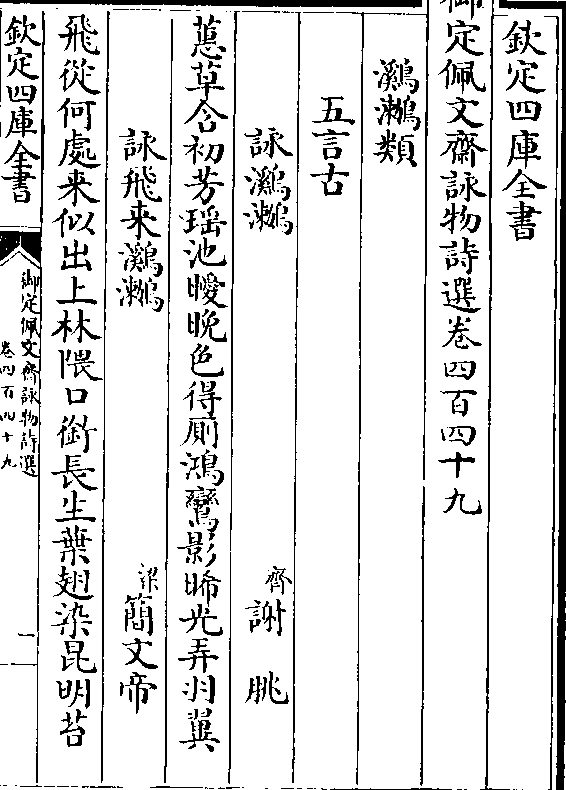 欽定四庫全書
御定佩文齋詠物詩選卷四百四十九
鸂鶒類
五言古
詠鸂鶒 齊 謝朓
蕙草含初芳瑤池曖晚色得厠鴻鸞影晞光弄羽翼
詠飛来鸂鶒 梁 簡文帝
飛從何處来似出上林隈口銜長生葉翅染昆明苔
欽定四庫全書
御定佩文齋詠物詩選
卷四百四十九
一